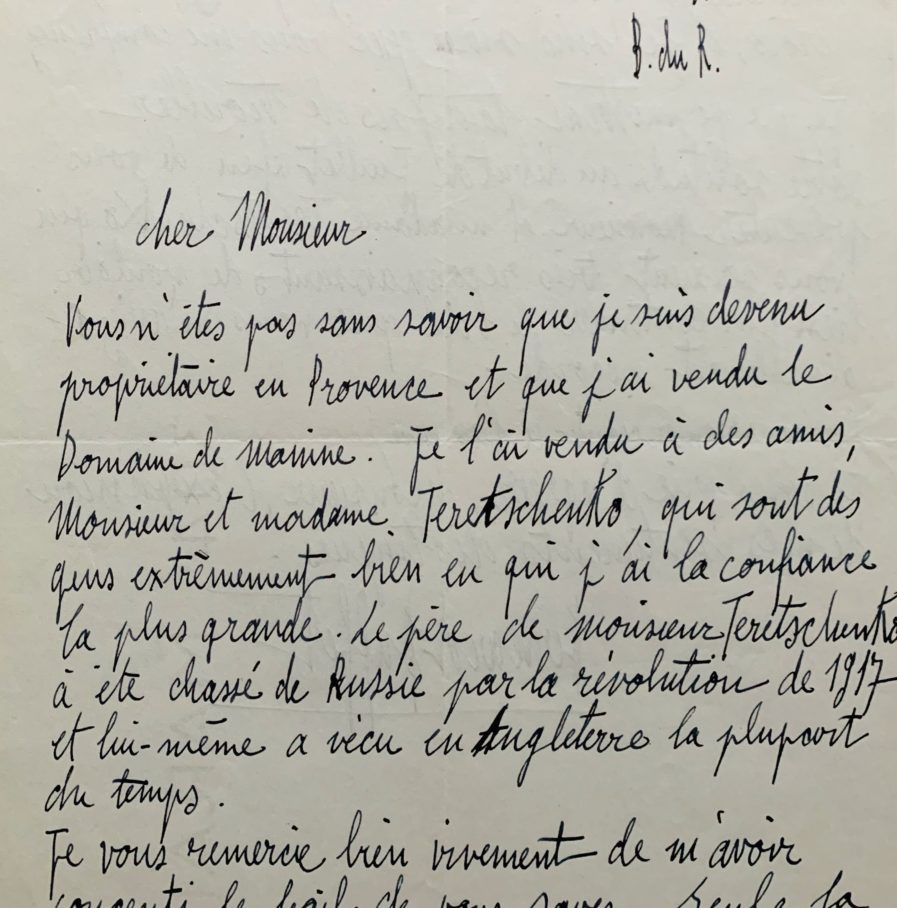 B. du R.
cher Monsieur
Vous n'êtes pas sans savoir que je suis devenu
propriétaire en Provence et que j'ai vendu le
Domaine de Manine. Je l'ai vendu à des amis,
Monsieur et madame Teretschenko, qui sont des
gens extrèmement bien en qui j'ai la confiance
la plus grande. Le père de monsieur Teretschenko
à été chassé de Russie par la révolution de 1917
et lui-même a vécu en Angleterre la plupart
du temps.
Je vous remercie bien vivement de m'avoir
consenti le bail de vous savez. Seule la